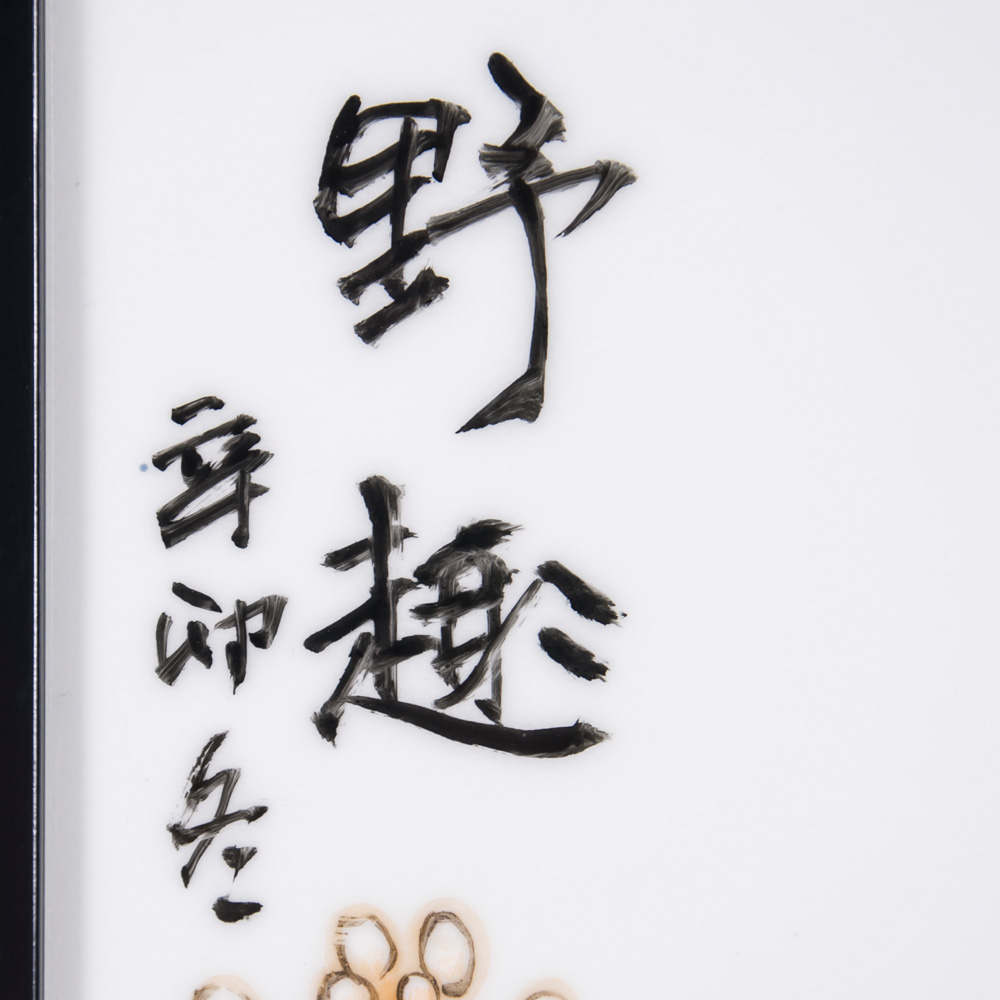 野趣
辛卯冬